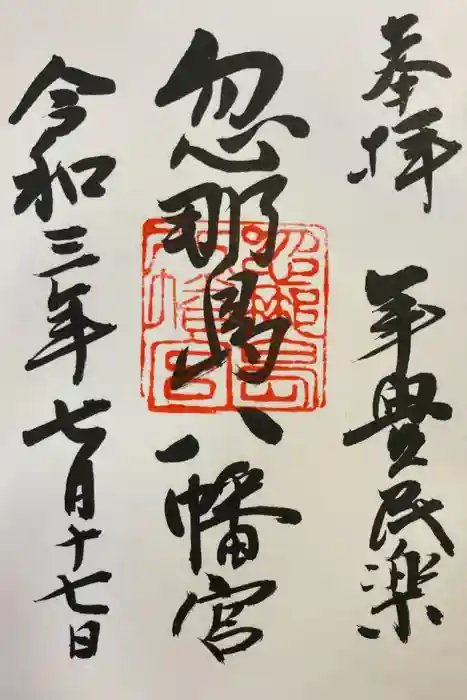 奉拝 年豊民楽
忽那島八幡宮
令和三年七月十七日
忽那島八幡宮